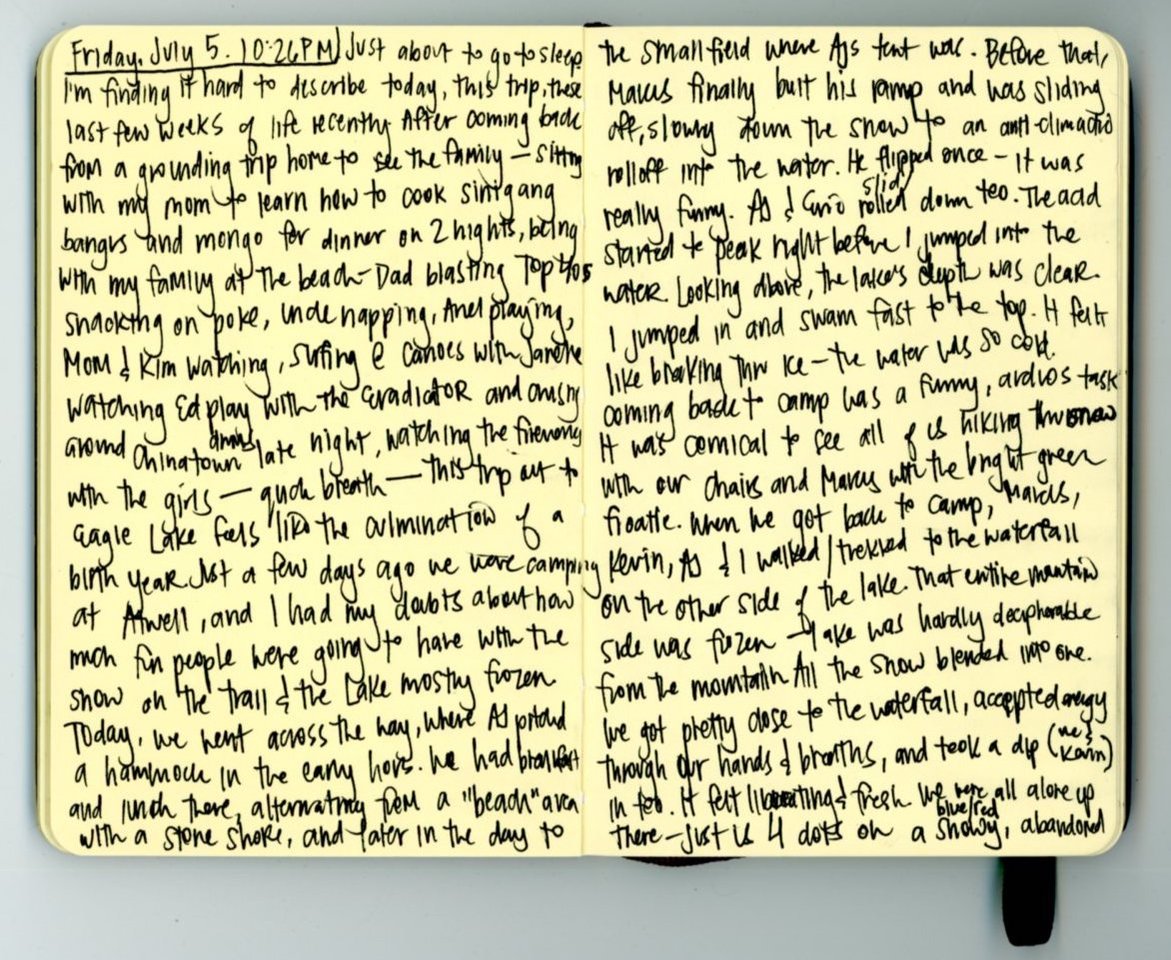 Friday, July 5. 10:26PM Just about to go to sleep.
I'm finding it hard to describe today, this trip, these
last few weeks of life recently After coming back
from a grounding trip home to see the family – sitting
with my mom to learn how to cook sinigang
bangus and mongo for dinner on 2 nights, being
with my family at the beach – Dad blasting Top 40s
snacking on poke, Uncle napping, Anel playing,
Mom & Kim watching, surfing @ Canoes with
watching Ed play with the Eradicator and cruising
around Chinatown drunks late night, watching the fireworks
with the girls — quick breath — this trip out to
Eagle Lake feels like the culmination of a
birth year. Just a few days ago we were camping
at Atwell, and I had my doubts about how
much fun people were going to have with the
snow on the trail & the Lake mostly frozen.
Today, we went across the way, where AJ pitched
a hammock in the early hours. We had breakfast
and lunch there, alternating from a "beach" area
with a stone shore, and later in the day to
the small field where AJs tent was. Before that,
Marcus finally built his ramp and was sliding
off, slowly down the snow to an anti-climactic
rolloff into the water. He flipped once – it was
really funny. AJ & rolled slid down too. The acid
started to peak right before I jumped into the
water. Looking above, the lake's depth was clear.
I jumped in and swam fast to the top. It felt
like breaking thru ice – the water was so cold.
coming back to camp was a funny, ardios task
It was comical to see all of us hiking thru snow
with our chairs and Marcus with the bright green
floatie. When we got back to camp, Marcus,
Kevin, AJ & I walked/trekked to the waterfall
on the other side of the lake. That entire mountain
side was frozen – lake was hardly decipherable
from the mountain All the snow blended into one.
We got pretty close to the waterfall, accepted energy
through our hands & breaths, and took a dip (me & Kevin)
in too. It felt liberating & fresh We were all alone up
there – just us 4 blue/red dots on a snowy, abandoned